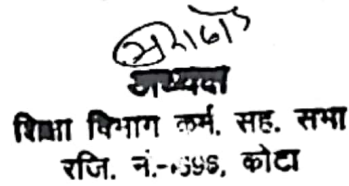 अध्यक्ष
शिक्षा विभाग कर्म. सह. सभा
रजि. नं.- कोटा